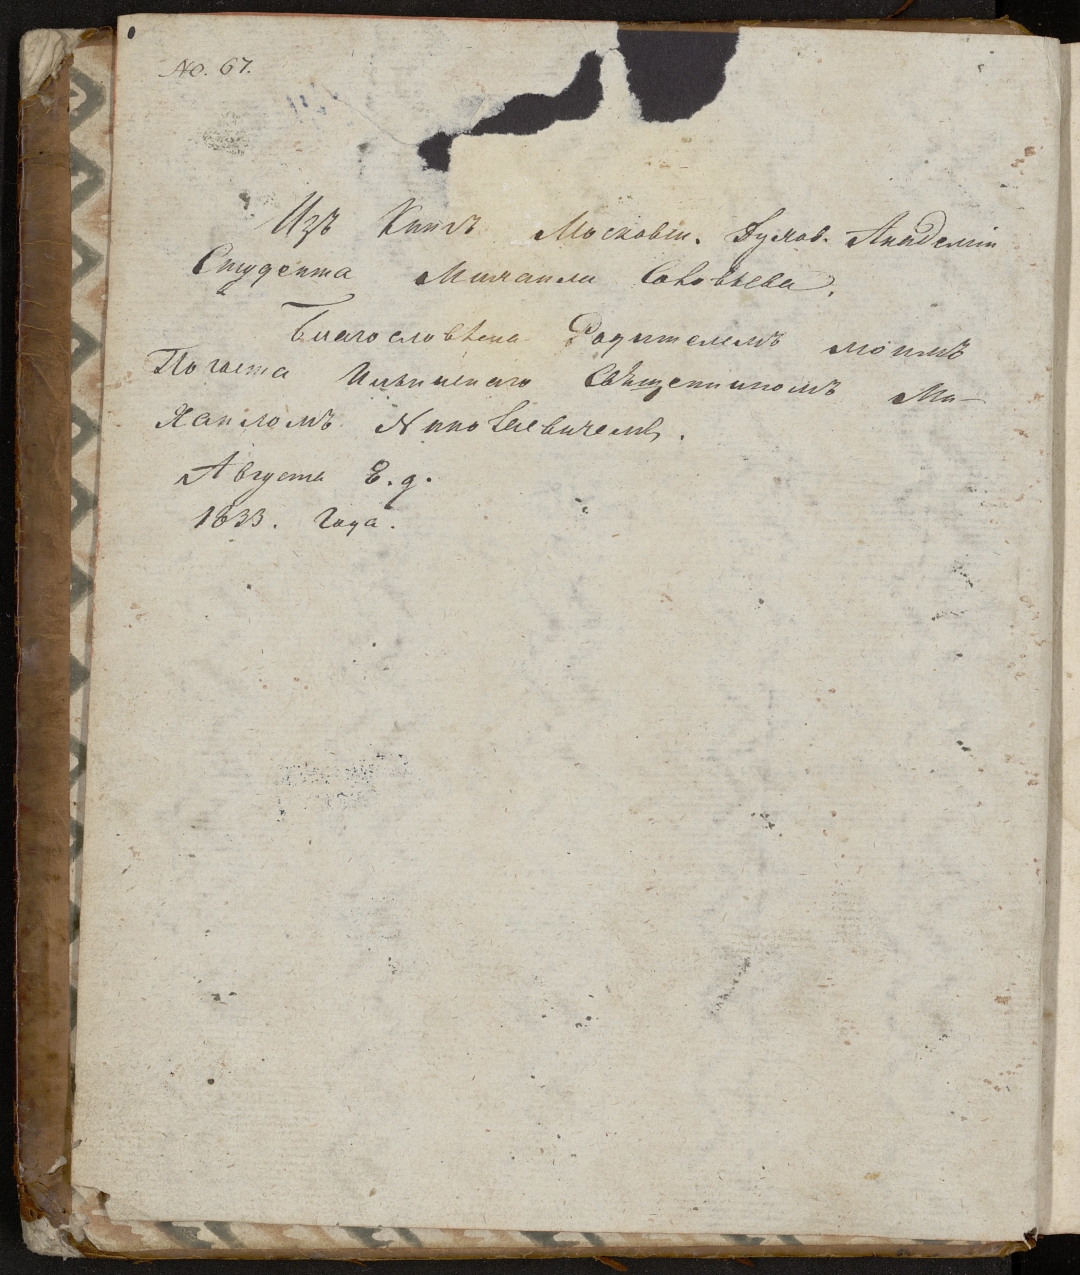 No. 67.
Изъ Книгъ Московск. Духов. Академіи
Студента Михаила Соловьева.
Благословѣна Родителемъ моимъ
Погоста Ильинскаго Священникомъ Ми-
хаиломъ Николаевичемъ.
Августа 8. д.
1833. Года.